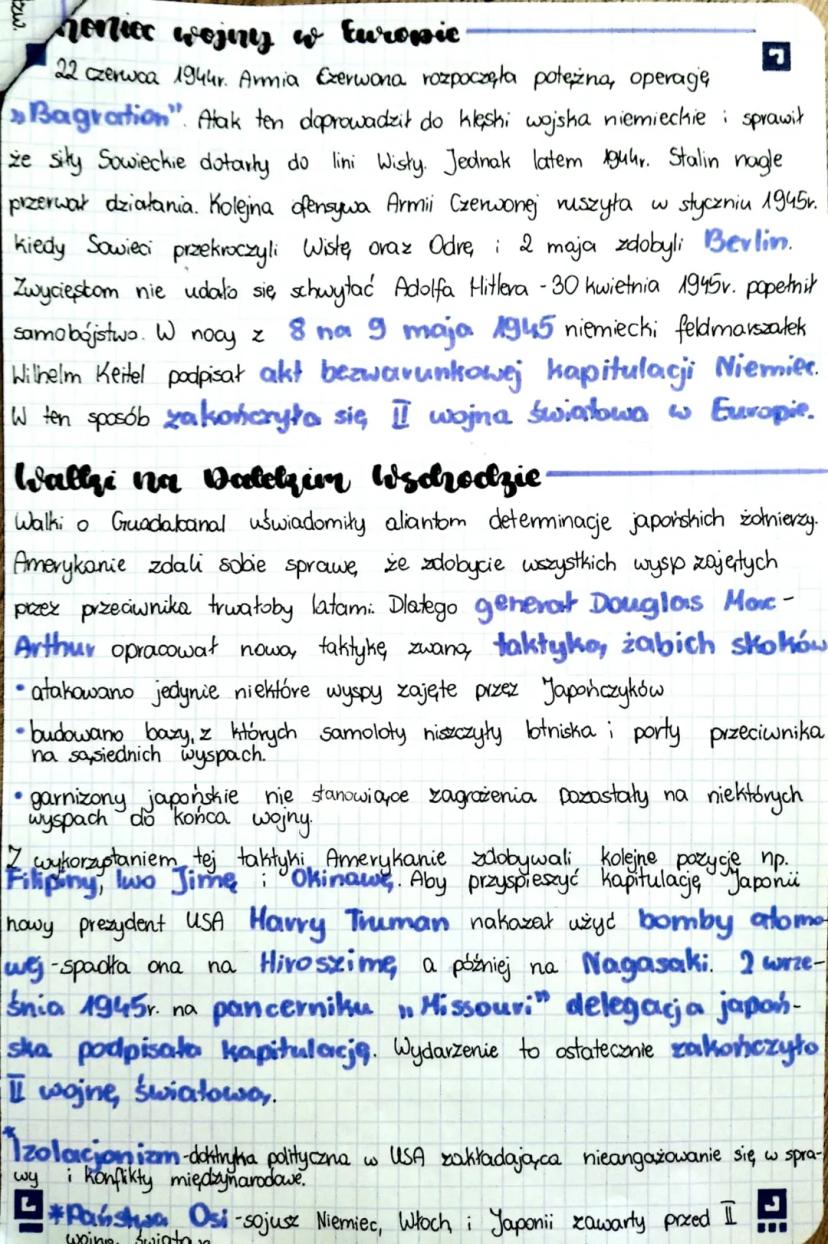 Koniec wojny w Europie
22 czerwca 1944r. Armia Czerwona rozpoczęła potężną operację
„Bagration". Atak ten doprowadził do klęski wojska niemieckie i sprawił
że siły Sowieckie dotarły do lini Wisły. Jednak latem 1944r. Stalin nagle
przerwał działania. Kolejna ofensywa Armii Czerwonej ruszyła w styczniu 1945r.
kiedy Sowieci przekroczyli Wisłę oraz Odrę i 2 maja zdobyli Berlin.
Zwycięstom nie udało się schwytać Adolfa Hitlera - 30 kwietnia 1945r. popełnił
samobójstwo. W nocy z 8 na 9 maja 1945 niemiecki feldmarszałek
Wilhelm Keitel podpisał akt bezwarunkowej kapitulacji Niemiec.
W ten sposób zakończyła się II wojna światowa w Europie.
Walki na Dalekim Wschodzie
Walki o Guadalcanal uświadomiły aliantom determinacje japońskich żołnierzy.
Amerykanie zdali sobie sprawę, że zdobycie wszystkich wysp zajętych
przez przeciwnika trwałoby latami. Dlatego generał Douglas Mac-
Arthur opracował nową taktykę zwaną taktyką żabich skoków
• atakowano jedynie niektóre wyspy zajęte przez Japończyków
• budowano bazy, z których samoloty niszczyły lotniska i porty przeciwnika
na sąsiednich wyspach.
• garnizony japońskie nie stanowiące zagrożenia pozostały na niektórych
wyspach do końca wojny.
Z wykorzystaniem tej taktyki Amerykanie zdobywali kolejne pozycje np.
Filipiny, Iwo Jimę i Okinawę. Aby przyspieszyć kapitulację Japonii
nowy prezydent USA Harry Truman nakazał użyć bomby atomo-
wej - spadła ona na Hiroszimę, a później na Nagasaki. 2 wrze-
śnia 1945r. na pancerniku „Missouri" delegacja japoń-
ska podpisała kapitulację. Wydarzenie to ostatecznie zakończyło
II wojnę światową.
*Izolacjonizm - doktryka polityczna w USA zakładająca nieangażowanie się w spra-
wy i konflikty międzynarodowe.
*Państwa Osi - sojusz Niemiec, Włoch i Japonii zawarty przed II
wojną światą